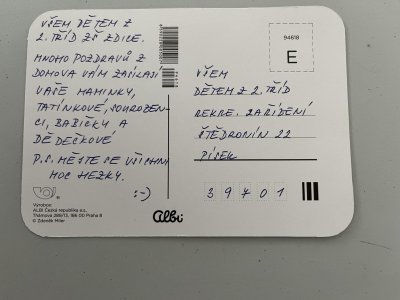 VŠEM DĚTEM Z
2. TŘÍD ZŠ ZDICE.
MNOHO POZDRAVŮ Z
DOMOVA VÁM ZASÍLAJÍ
VAŠE MAMINKY,
TATÍNKOVÉ, SOUROZEN-
CI, BABIČKY A
DĚDEČKOVÉ
P.S. MĚJTE SE VŠICHNI
MOC HEZKY.
:-)
Výrobce:
ALBI Česká republika a.s.
Thámova 289/13, 186 00 Praha 8
© Zdeněk Miler
Albi
94618
E
VŠEM
DĚTEM Z 2. TŘÍD
REKRE. ZAŘÍZENÍ
ŠTĚDRONÍN 22
PÍSEK
39701